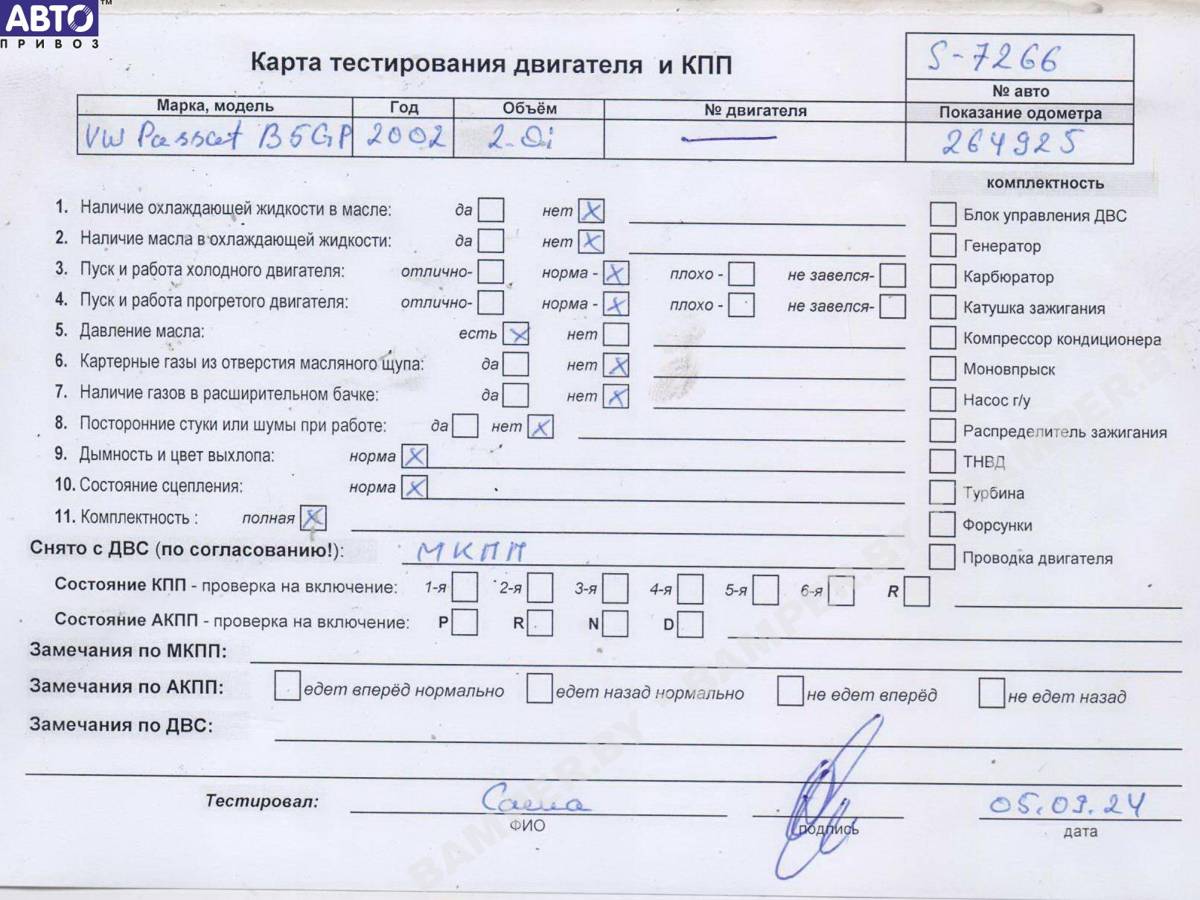 АВТО™
ПРИВОЗ
Карта тестирования двигателя и КПП
S-7266
№ авто
Марка, модель Год Объём № двигателя Показание одометра
VW Passat B5GP 2002 2.0i — 264925
комплектность
1. Наличие охлаждающей жидкости в масле: да нет X
2. Наличие масла в охлаждающей жидкости: да нет X
3. Пуск и работа холодного двигателя: отлично- норма - X плохо - не завелся-
4. Пуск и работа прогретого двигателя: отлично- норма - X плохо - не завелся-
5. Давление масла: есть X нет
6. Картерные газы из отверстия масляного щупа: да нет X
7. Наличие газов в расширительном бачке: да нет X
8. Посторонние стуки или шумы при работе: да нет X
9. Дымность и цвет выхлопа: норма X
10. Состояние сцепления: норма X
11. Комплектность : полная X
Блок управления ДВС
Генератор
Карбюратор
Катушка зажигания
Компрессор кондиционера
Моновпрыск
Насос г/у
Распределитель зажигания
ТНВД
Турбина
Форсунки
Проводка двигателя
Снято с ДВС (по согласованию!): МКПП
Состояние КПП - проверка на включение: 1-я 2-я 3-я 4-я 5-я 6-я R
Состояние АКПП - проверка на включение: P R N D
Замечания по МКПП:
Замечания по АКПП: едет вперёд нормально едет назад нормально не едет вперёд не едет назад
Замечания по ДВС:
Тестировал: Саша 05.09.24
ФИО подпись дата
BAMPER.BY
BAMPER.BY
BAMPER.BY